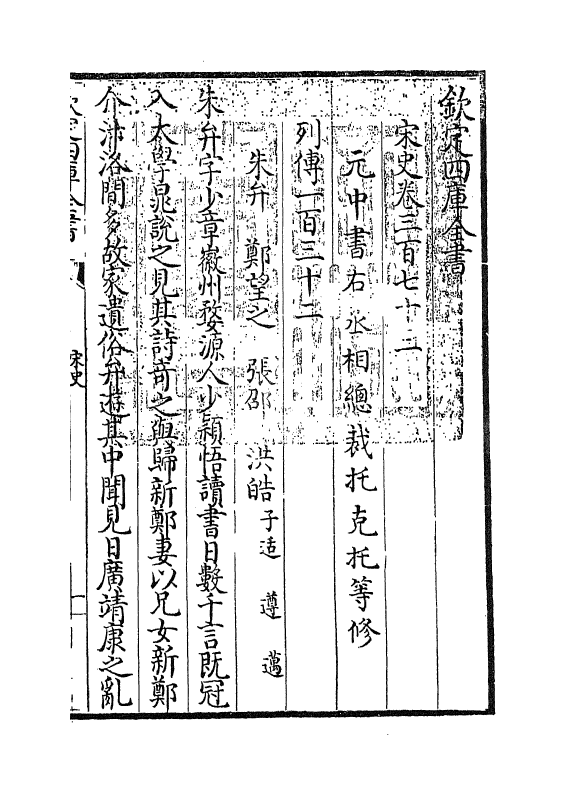 欽定四庫全書
宋史卷三百七十三
元中書右丞相總裁托克托等修
列傳一百三十二
朱弁　鄭望之　張邵　洪皓子适　遵　邁
朱弁字少章徽州婺源人少穎悟讀書日數千言既冠
入太學晁說之見其詩奇之與歸新鄭妻以兄女新鄭
介汴洛間多故家遺俗弁遊其中聞見日廣靖康之亂
欽定四庫全書
宋史